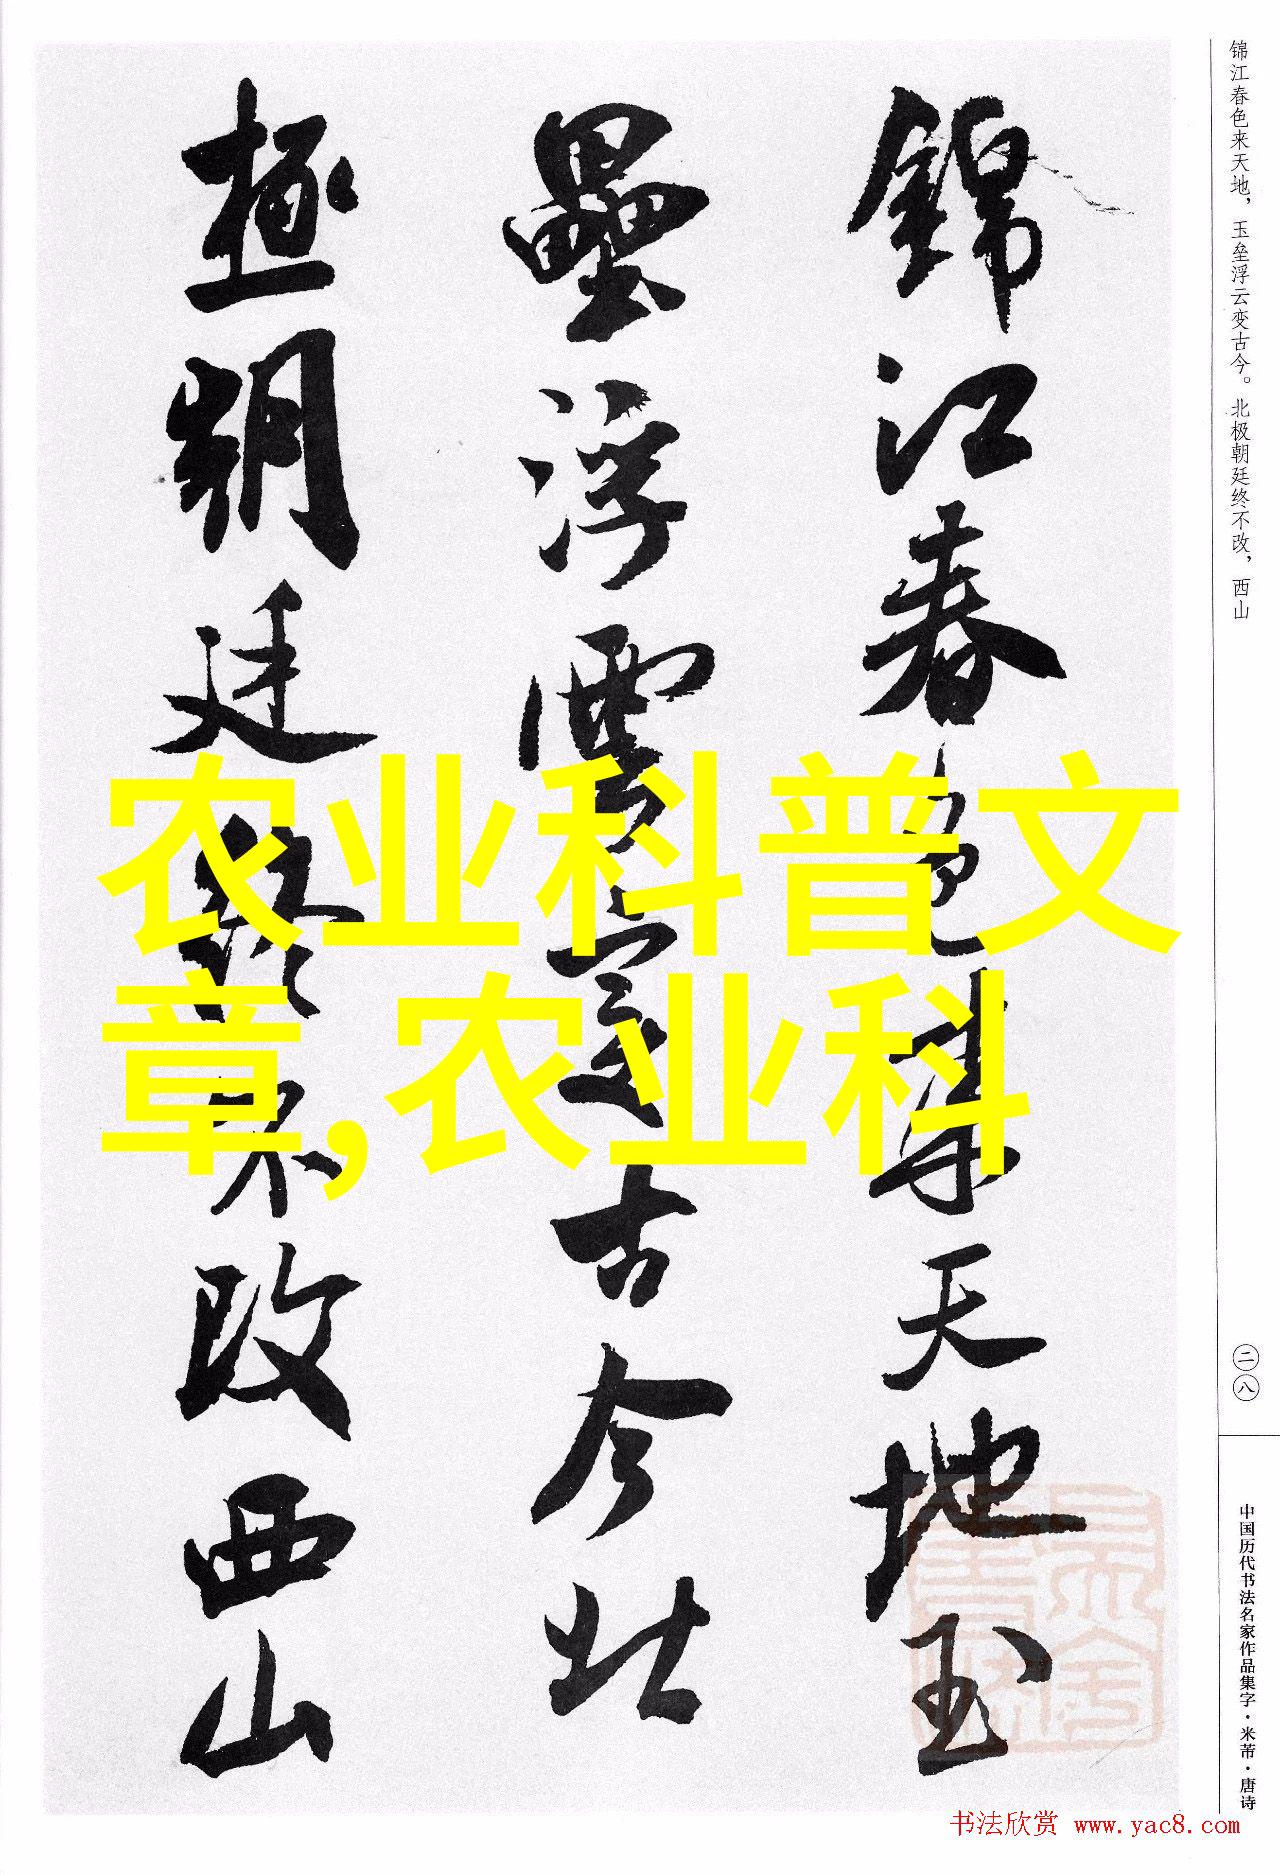 锦江春色来天地，玉垒浮云变古今。北极朝廷终不改，西山
錦江春色来天地玉
壘浮雲变古今北
極朝廷終不改西山
农业科普文
章,农业科
二八
中国历代书法名家作品集字·米芾·唐诗
书法欣赏 www.yac8.com